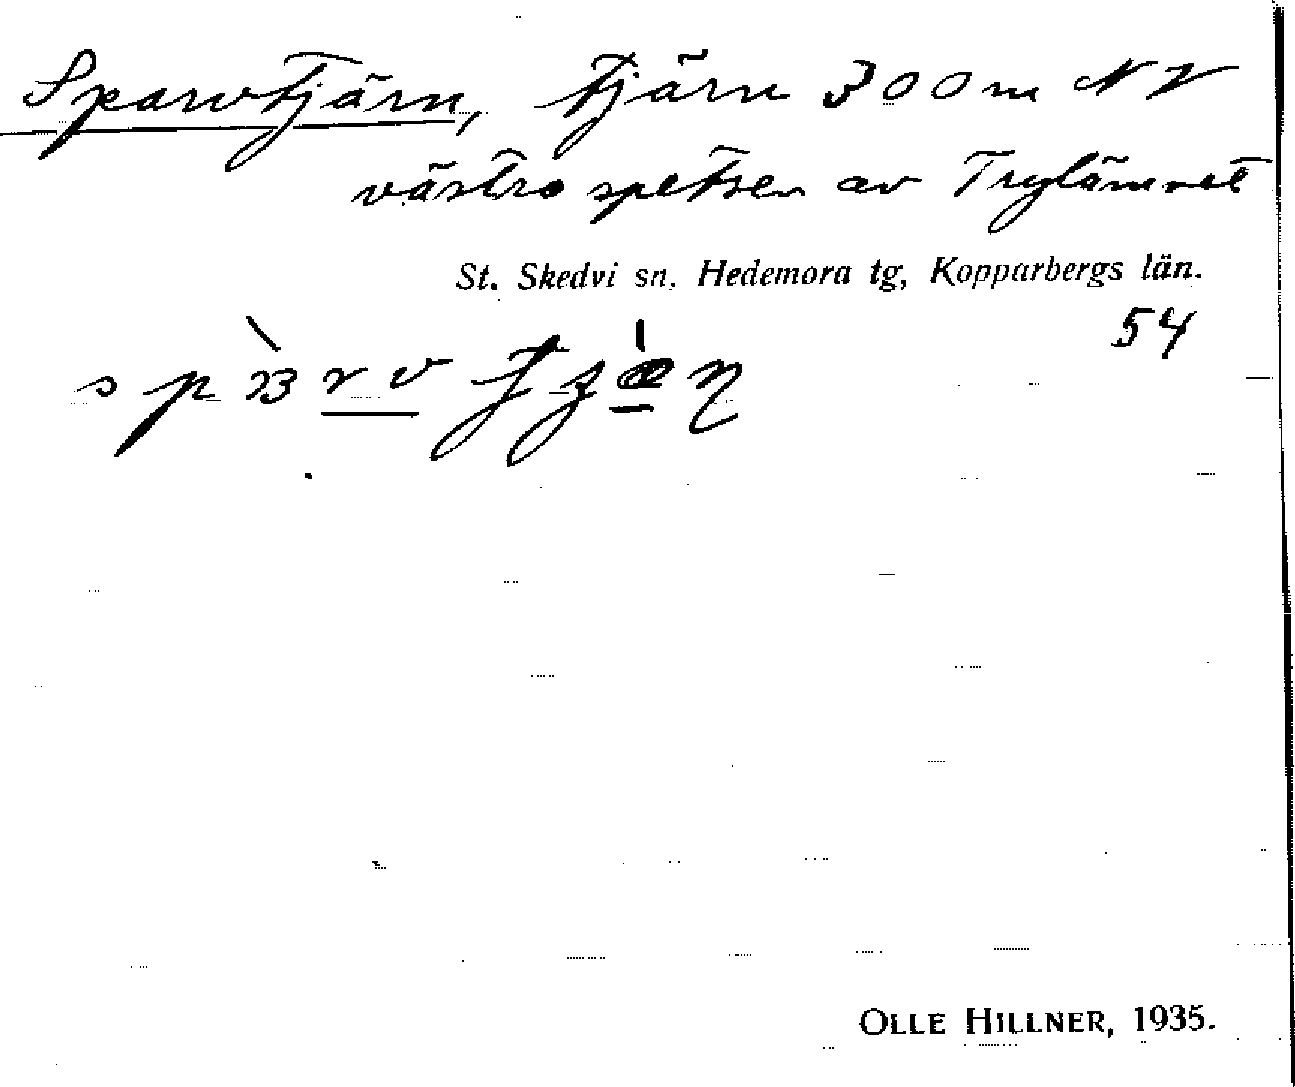 Sparvtjärn, tjärn 300 m NV
västra spetsen av
St. Skedvi sn. Hedemora tg, Kopparbergs län.
54
OLLE HILLNER, 1935.